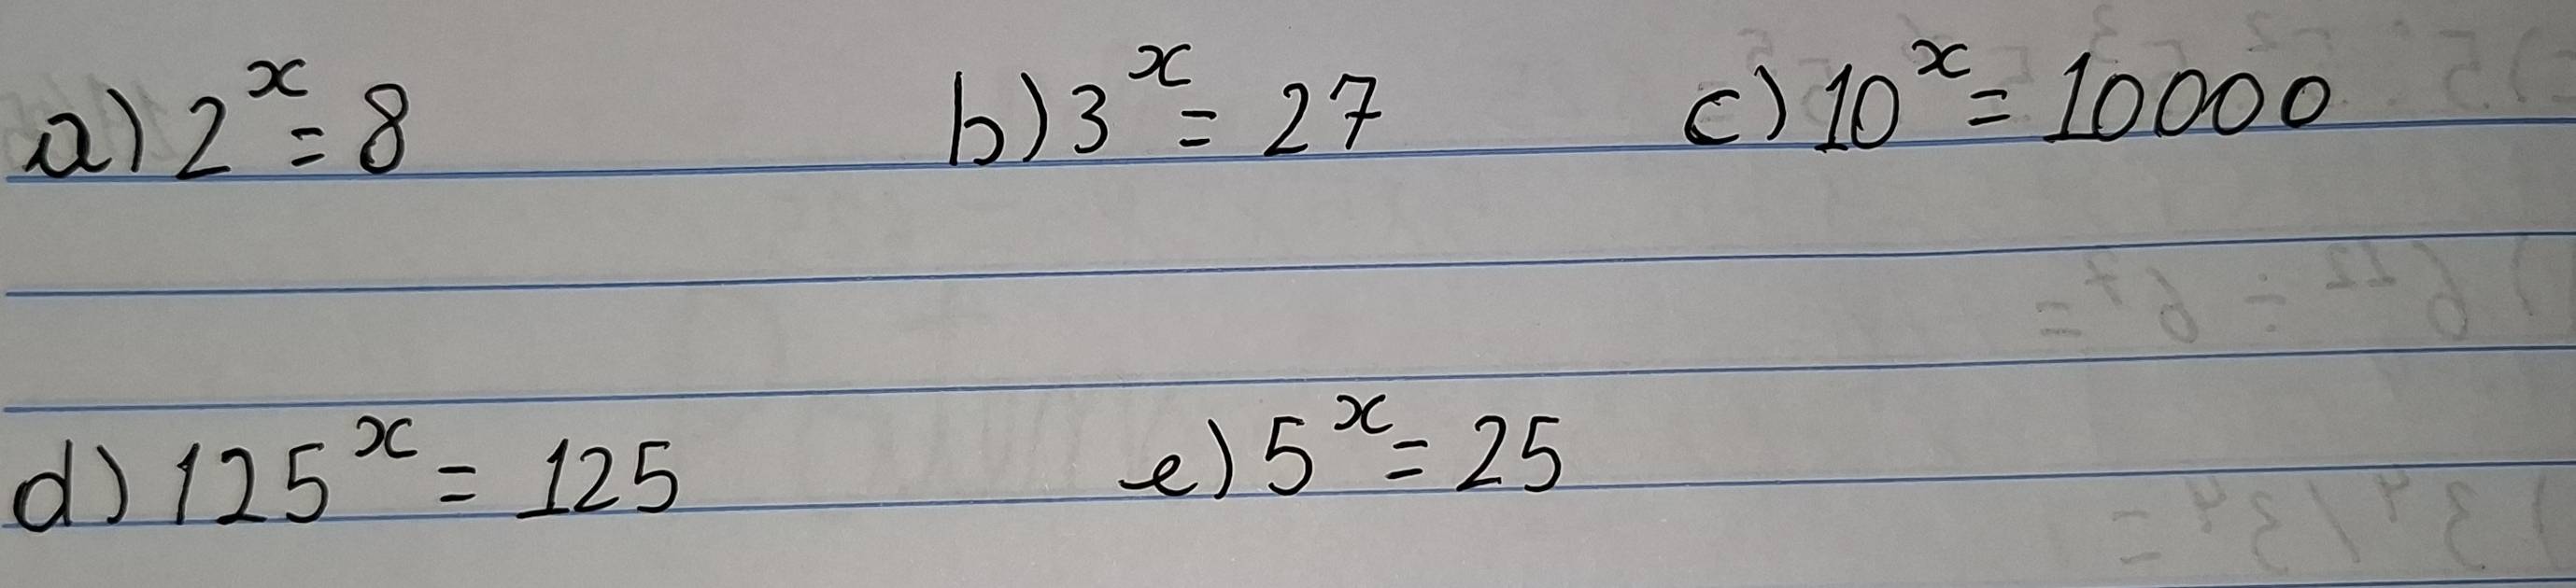 a) 2ˣ = 8 b) 3ˣ = 27 c) 10ˣ = 10000
d) 125ˣ = 125 e) 5ˣ = 25